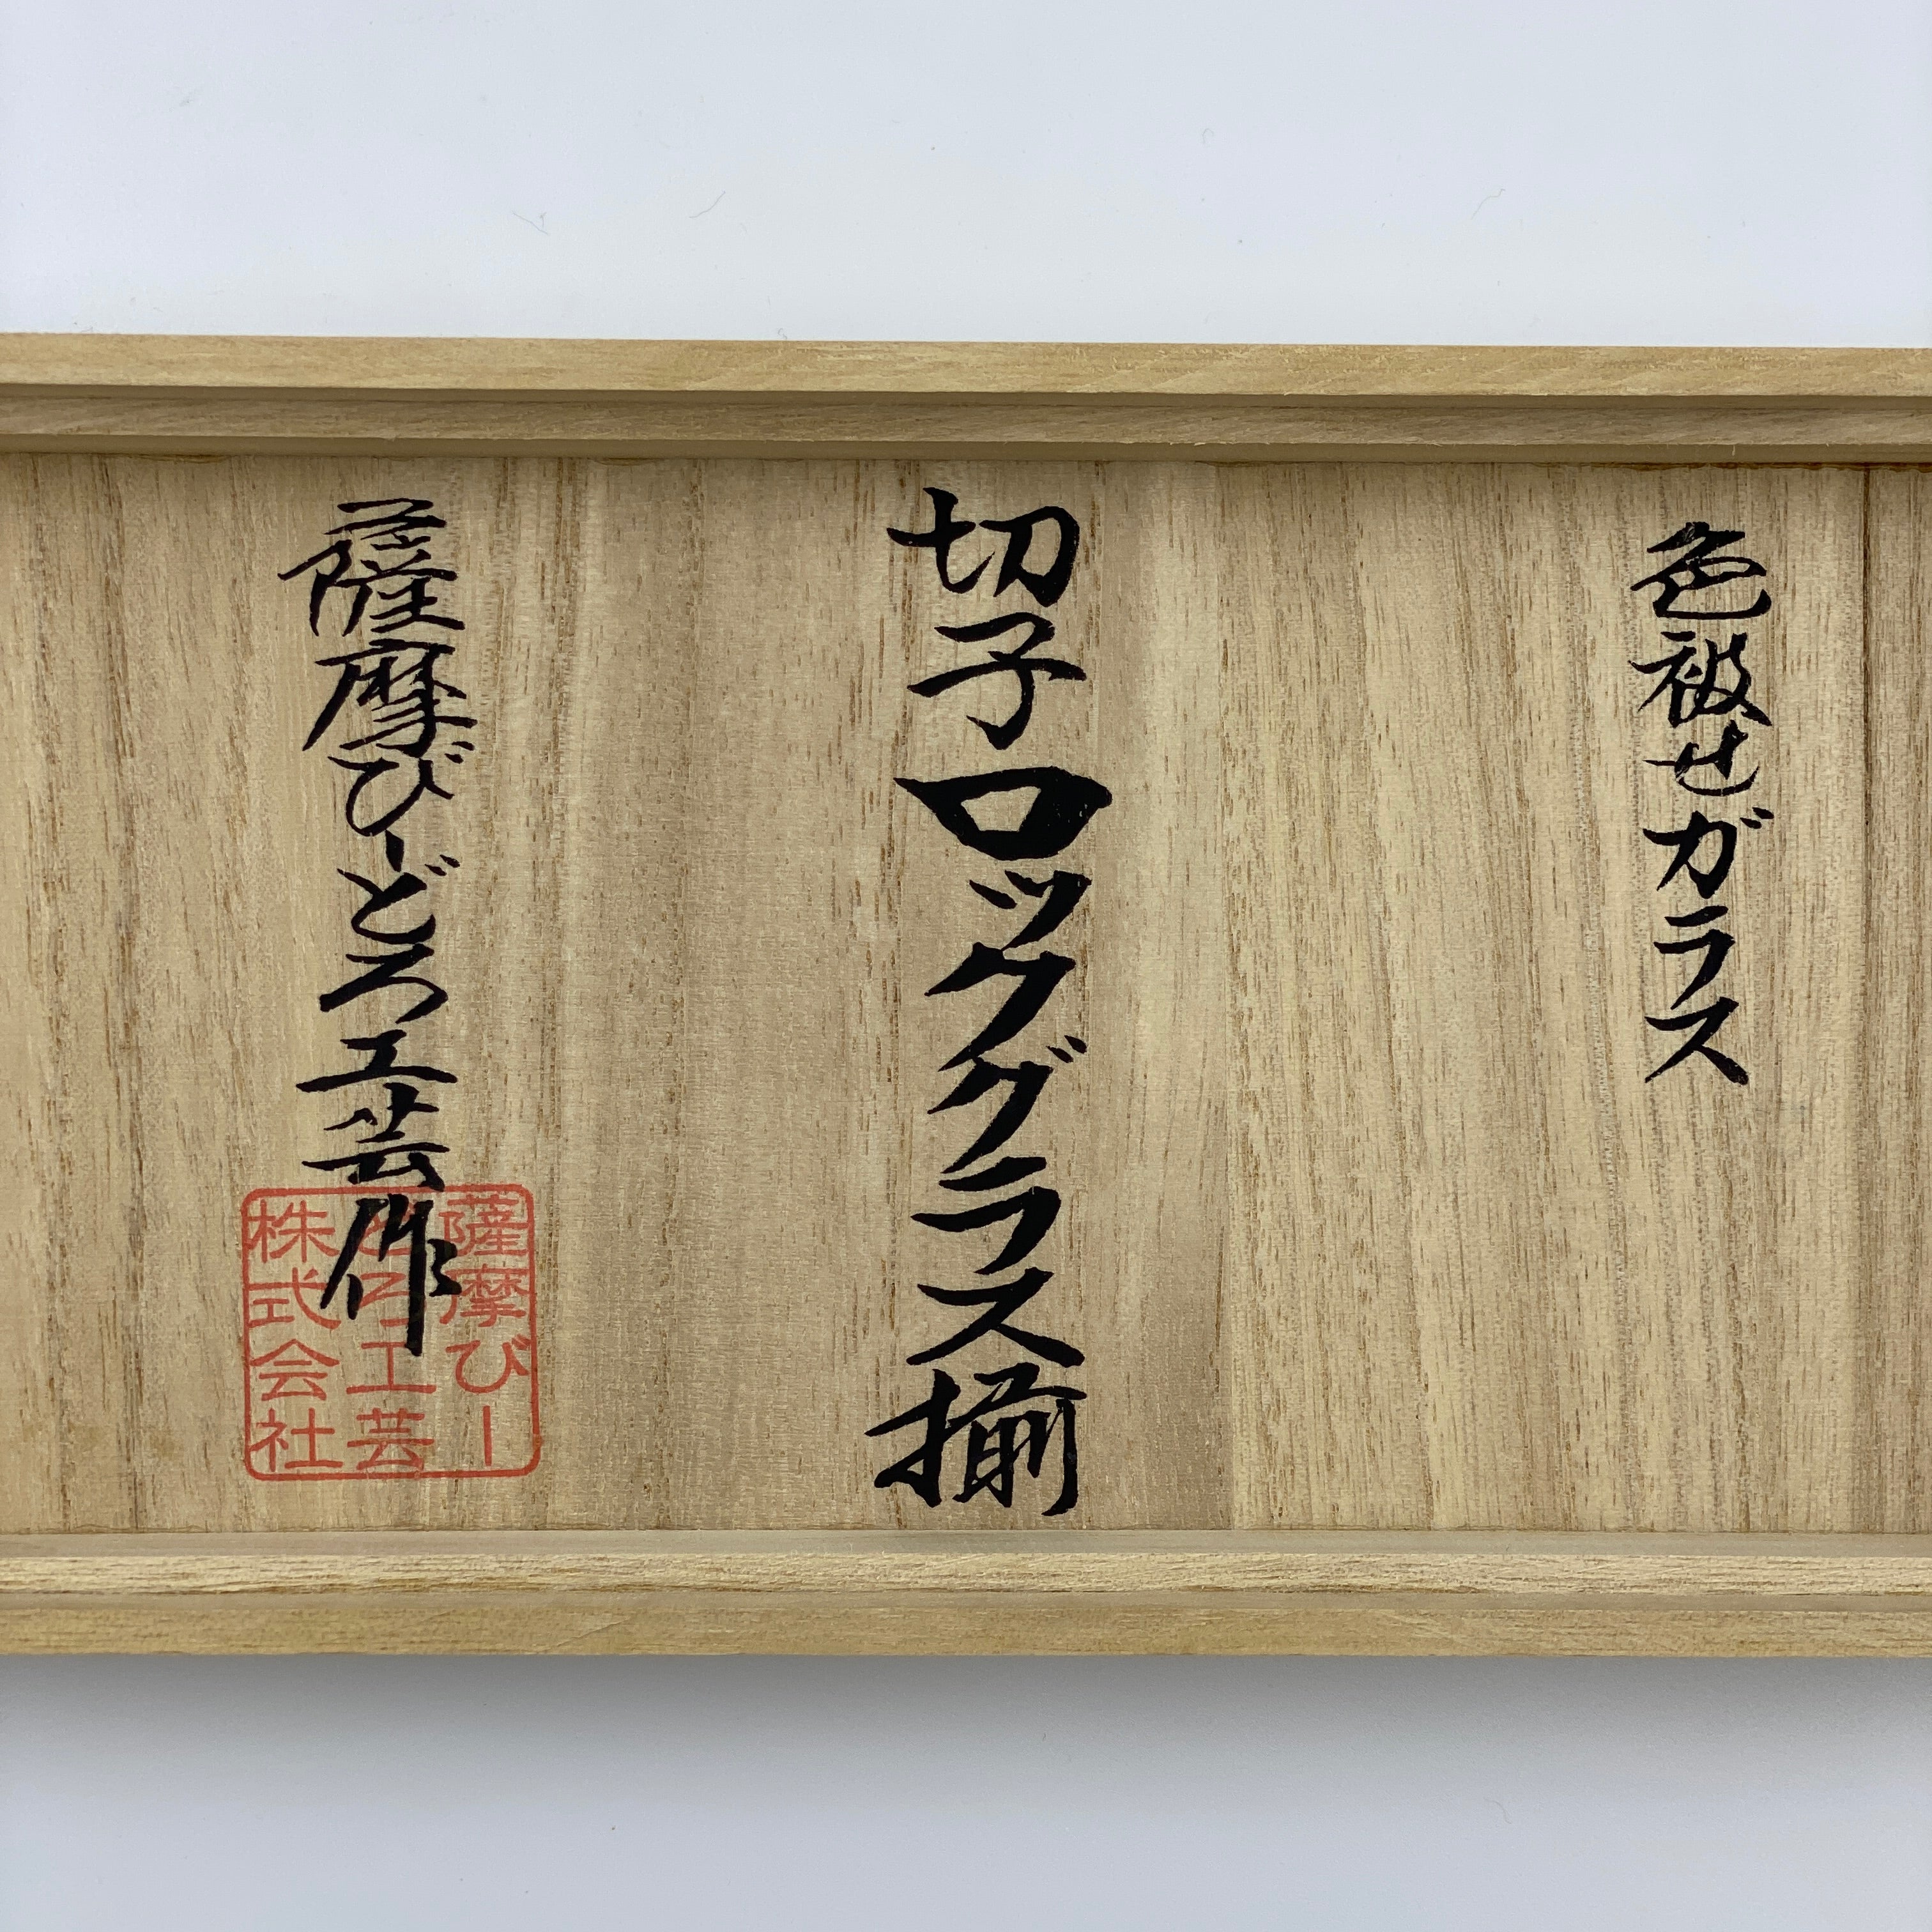 色被せガラス
切子ロックグラス揃
薩摩びーどろ工芸作
薩摩びー
どろ工芸
株式会社